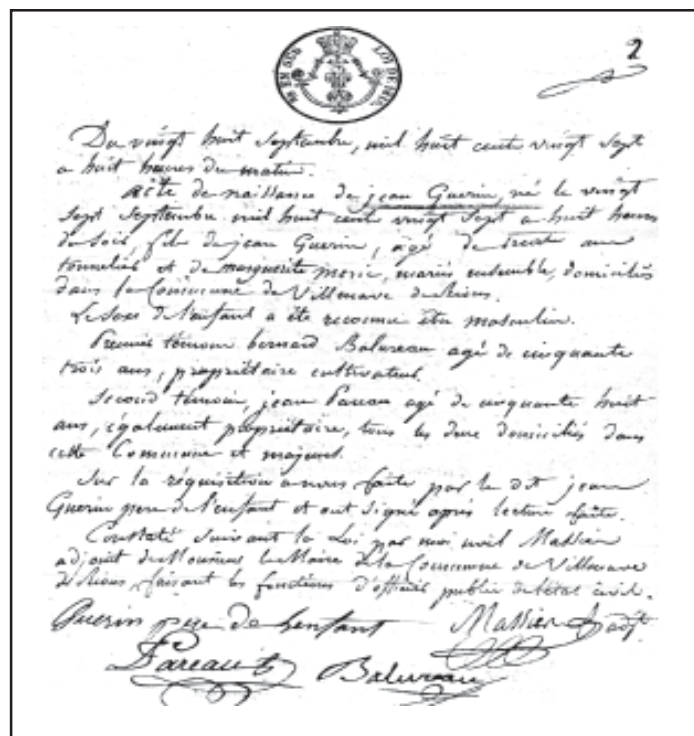 2
EN SUS
LOI DE 1816
Du vingt huit Septembre, mil huit cents vingt sept
a huit heures du matin.
acte de naissance de jean Guerin, né le vingt
Sept Septembre mil huit cents vingt Sept a huit heures
du Soir, fils de jean Guerin, agé de trente ans
tonnelier et de marguerite moric, mariés ensemble, domiciliés
dans la Commune de Villenave de Rions.
Le Sexe de l'enfant a été reconnu être masculin.
Premier témoin bernard Balureau agé de cinquante
trois ans, propriétaire cultivateur.
Second témoin, jean Pareau agé de cinquante huit
ans, également propriétaire, tous les deux domiciliés dans
cette Commune et majeurs.
Sur la réquisition a nous faite par le dit jean
Guerin pere de l'enfant et ont Signé après lecture faite.
Constaté Suivant la Loi par moi Massieu
adjoint de Monsieur le Maire de la Commune de Villenave
de Rions, faisant les fonctions d'officier public de l'état civil.
Guerin pere de lenfant Massieu adjt
Pareau Balureau